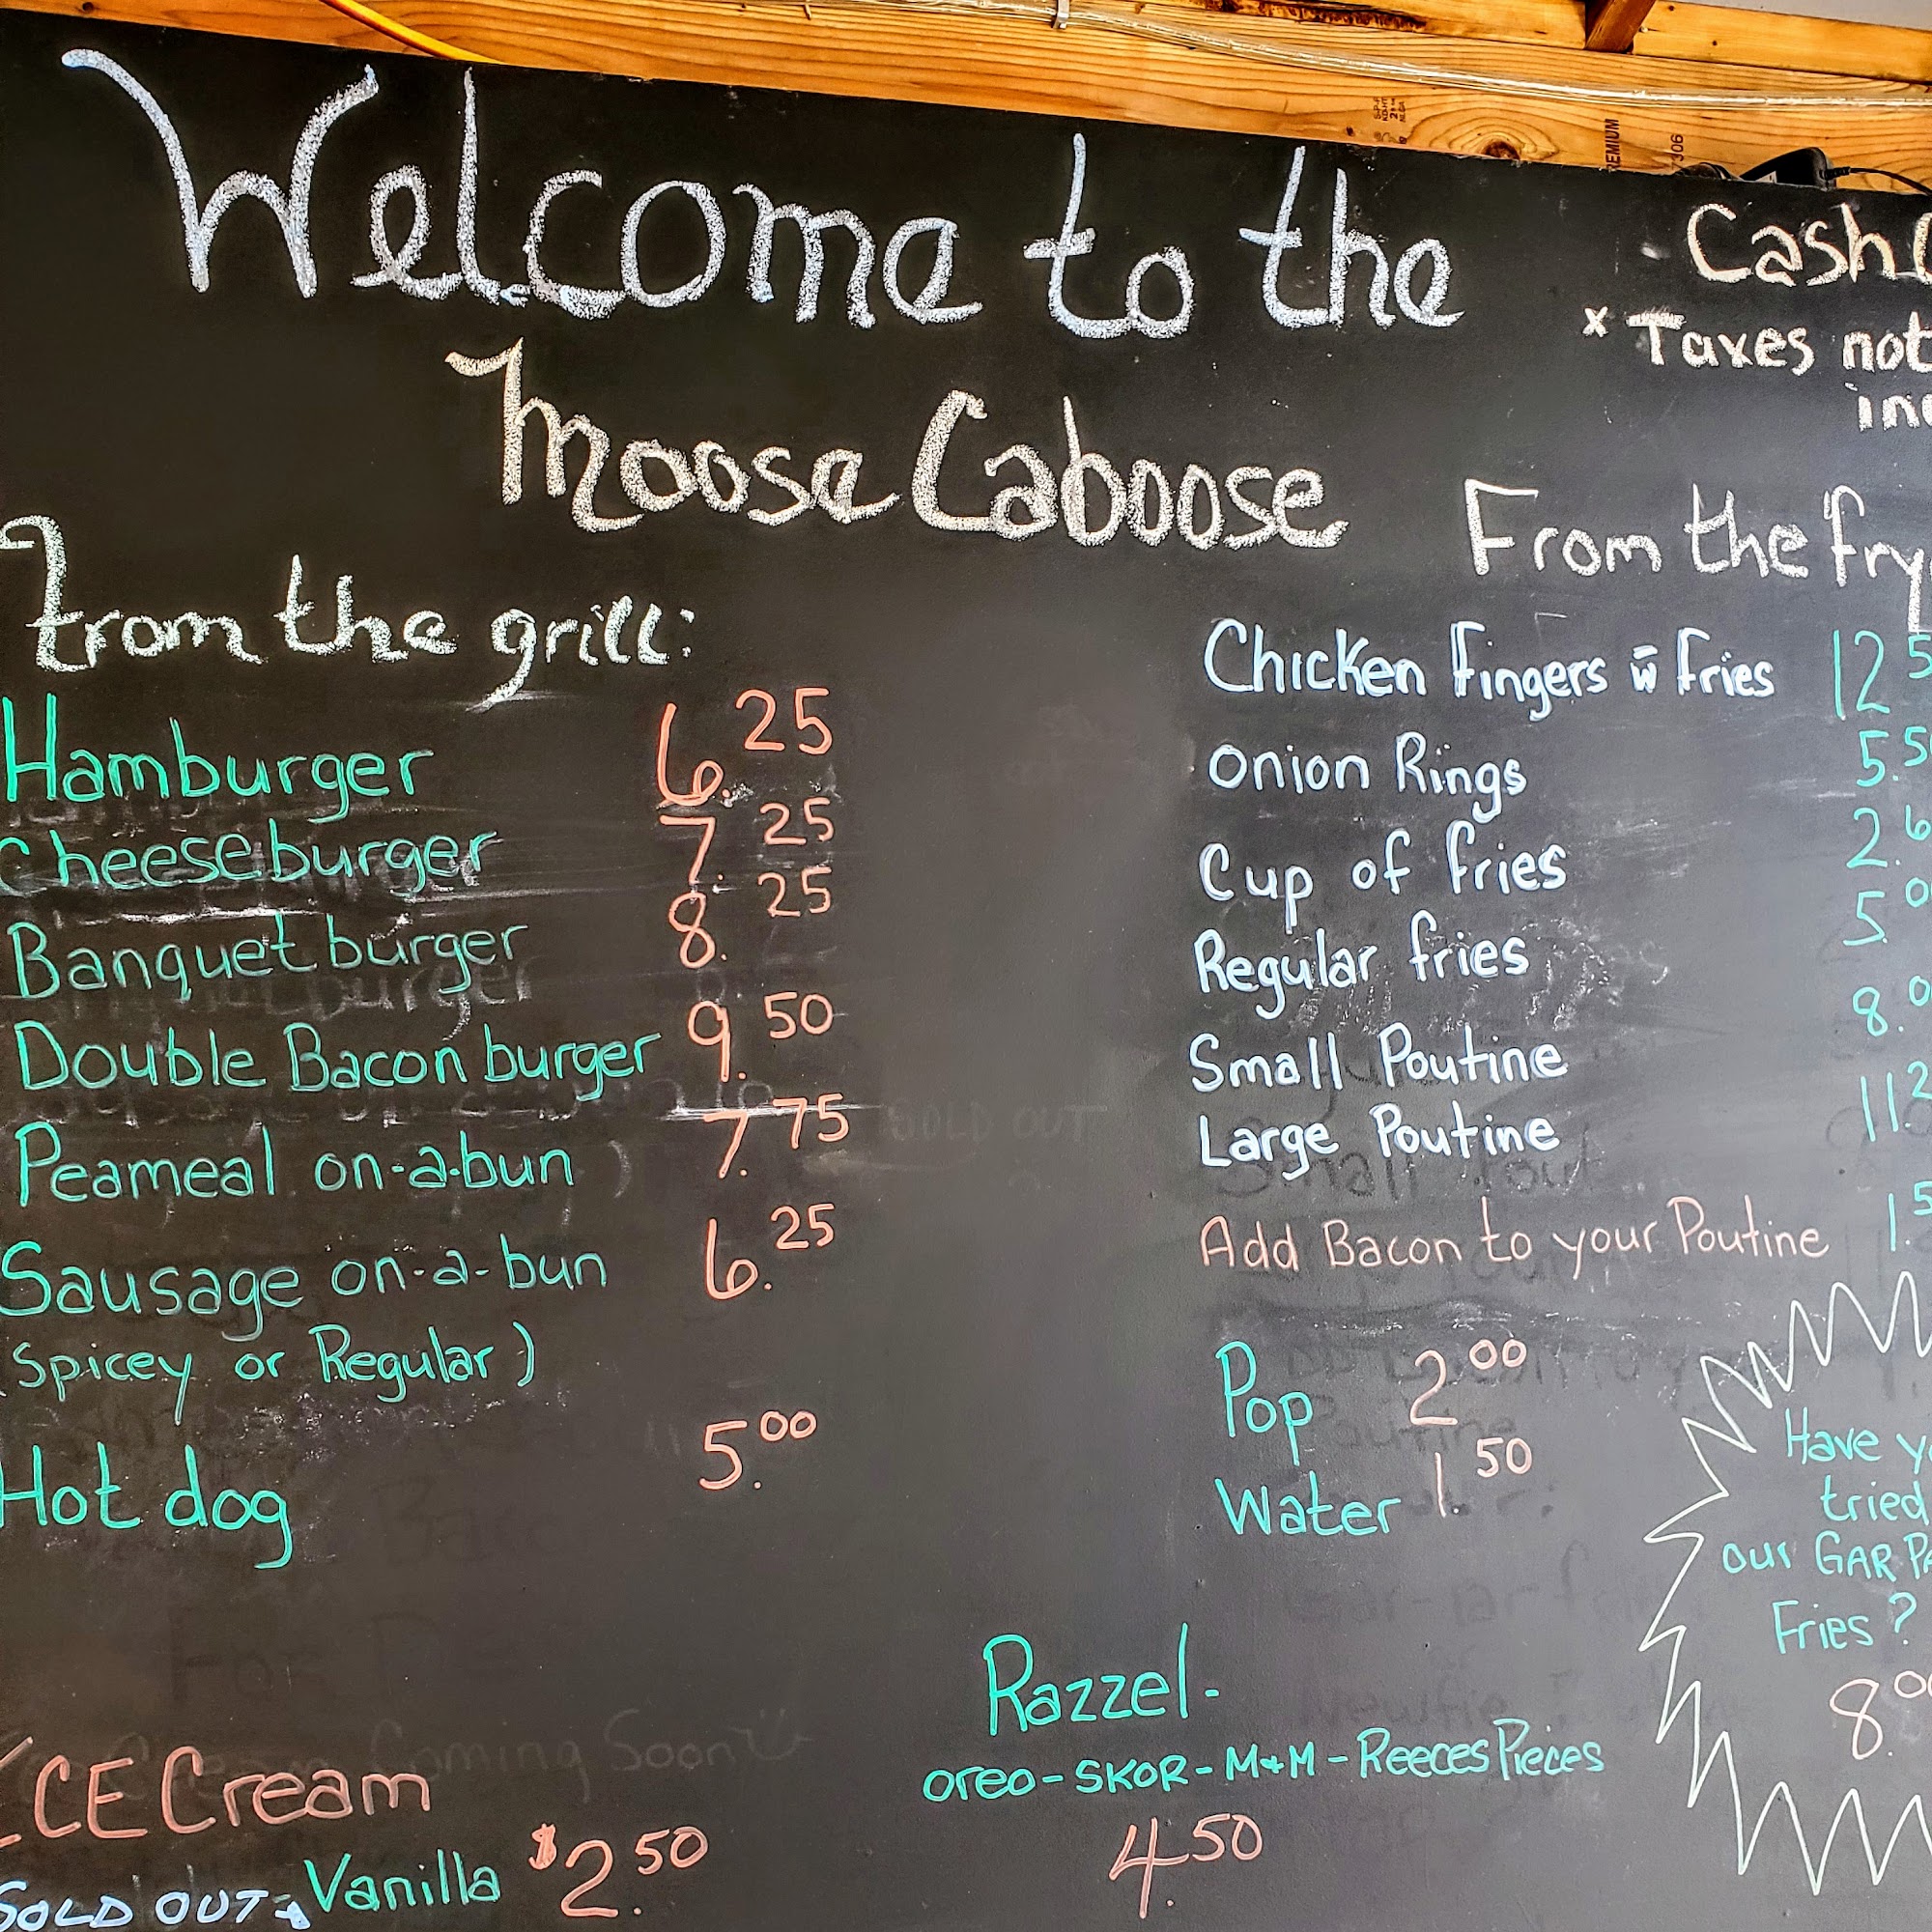 Welcome to the
Moose Caboose
Cash
* Taxes not
From the grill:
Hamburger 6.25
Cheeseburger 7.25
Banquet burger 8.25
Double Bacon burger 9.50
Peameal on-a-bun 7.75
Sausage on-a-bun 6.25
(Spicey or Regular)
Hot dog 5.00
From the fry
Chicken Fingers w̄ Fries 12.5
Onion Rings 5.5
Cup of fries 2.6
Regular fries 5.0
Small Poutine 8.0
Large Poutine 11.2
Add Bacon to your Poutine 1.5
Pop 2.00
Water 1.50
Have
tried
our GAR
Fries?
8.00
SOLD OUT
Coming Soon
ICE Cream
SOLD OUT Vanilla $2.50
Razzel-
Oreo-SKOR-M+M-Reeces Pieces
4.50
PREMIUM
7306